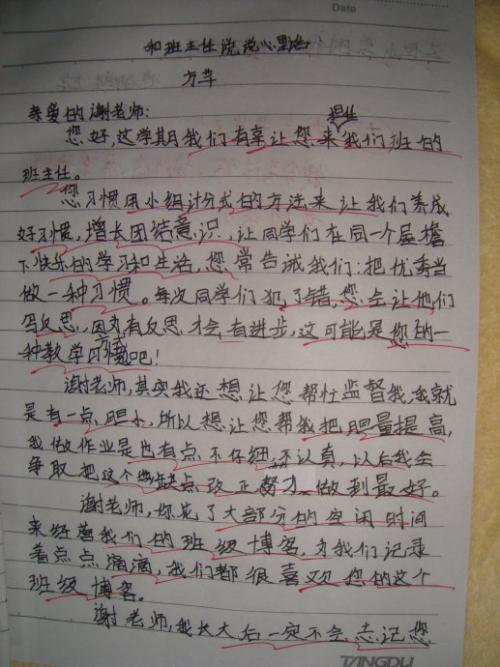 Date
和班主任说说心里话
方苹
亲爱的谢老师:
您好,这学期我们有幸让您来担任我们班的
班主任。
您习惯用小组计分式的方法来让我们养成
好习惯,增长团结意识,让同学们在同一个屋檐
下快乐的学习和生活,您常告诫我们:把优秀当
做一种习惯。每次同学们犯了错,您会让他们
写反思,因为有反思才会有进步,这可能是您的一
种教学方式吧!
谢老师,其实我还想让您帮忙监督我,我就
是有一点胆小,所以想让您帮我把胆量提高,
我做作业是也有点不仔细,不认真,以后我会
争取把这个些缺点改正努力做到最好。
谢老师,你花了大部分的空闲时间
来经营我们的班级博客,为我们记录
着点点滴滴,我们都很喜欢您的这个
班级博客。
谢老师,我长大后一定不会忘记您
TANGDU